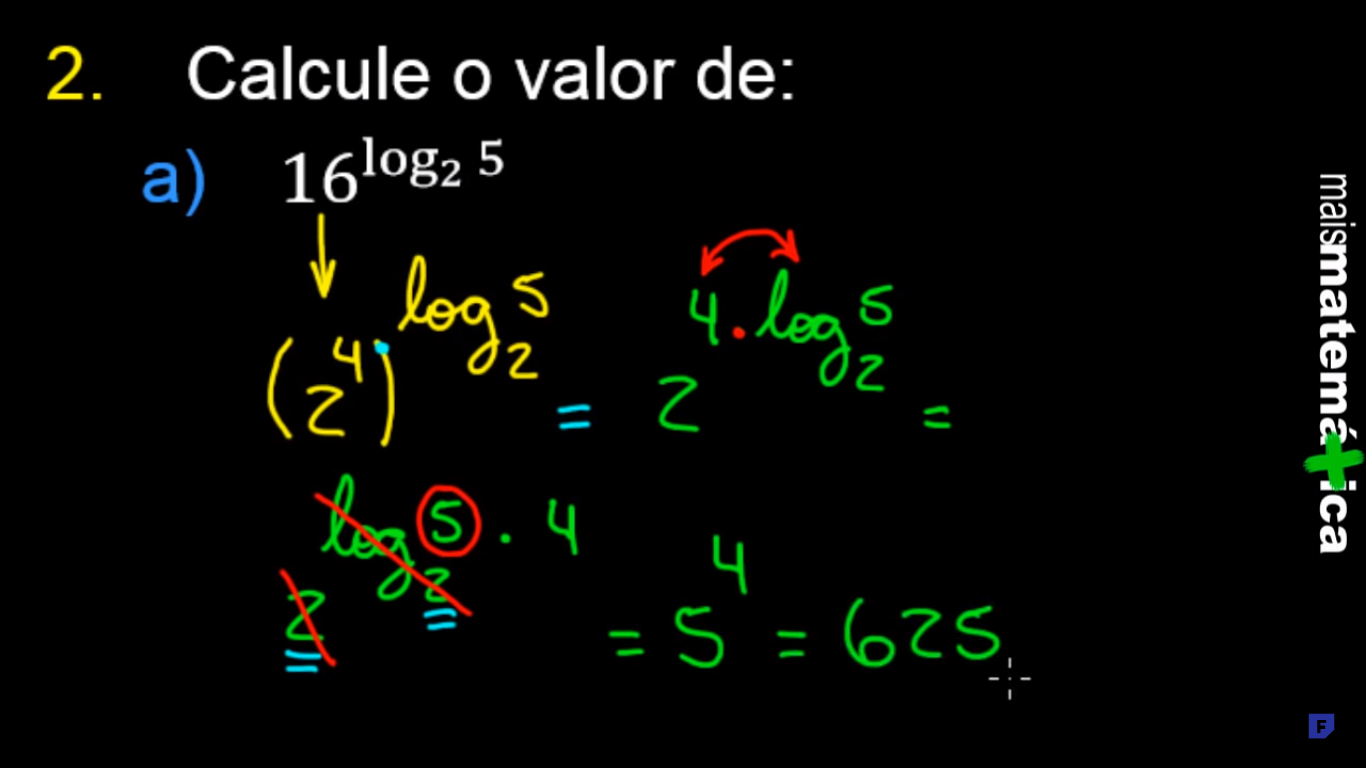 2. Calcule o valor de:
a) 16^log₂ 5
(2^4)^log₂ 5 = 2^4.log₂ 5 =
2^log₂ 5 . 4 = 5^4 = 625
maismatemática
F